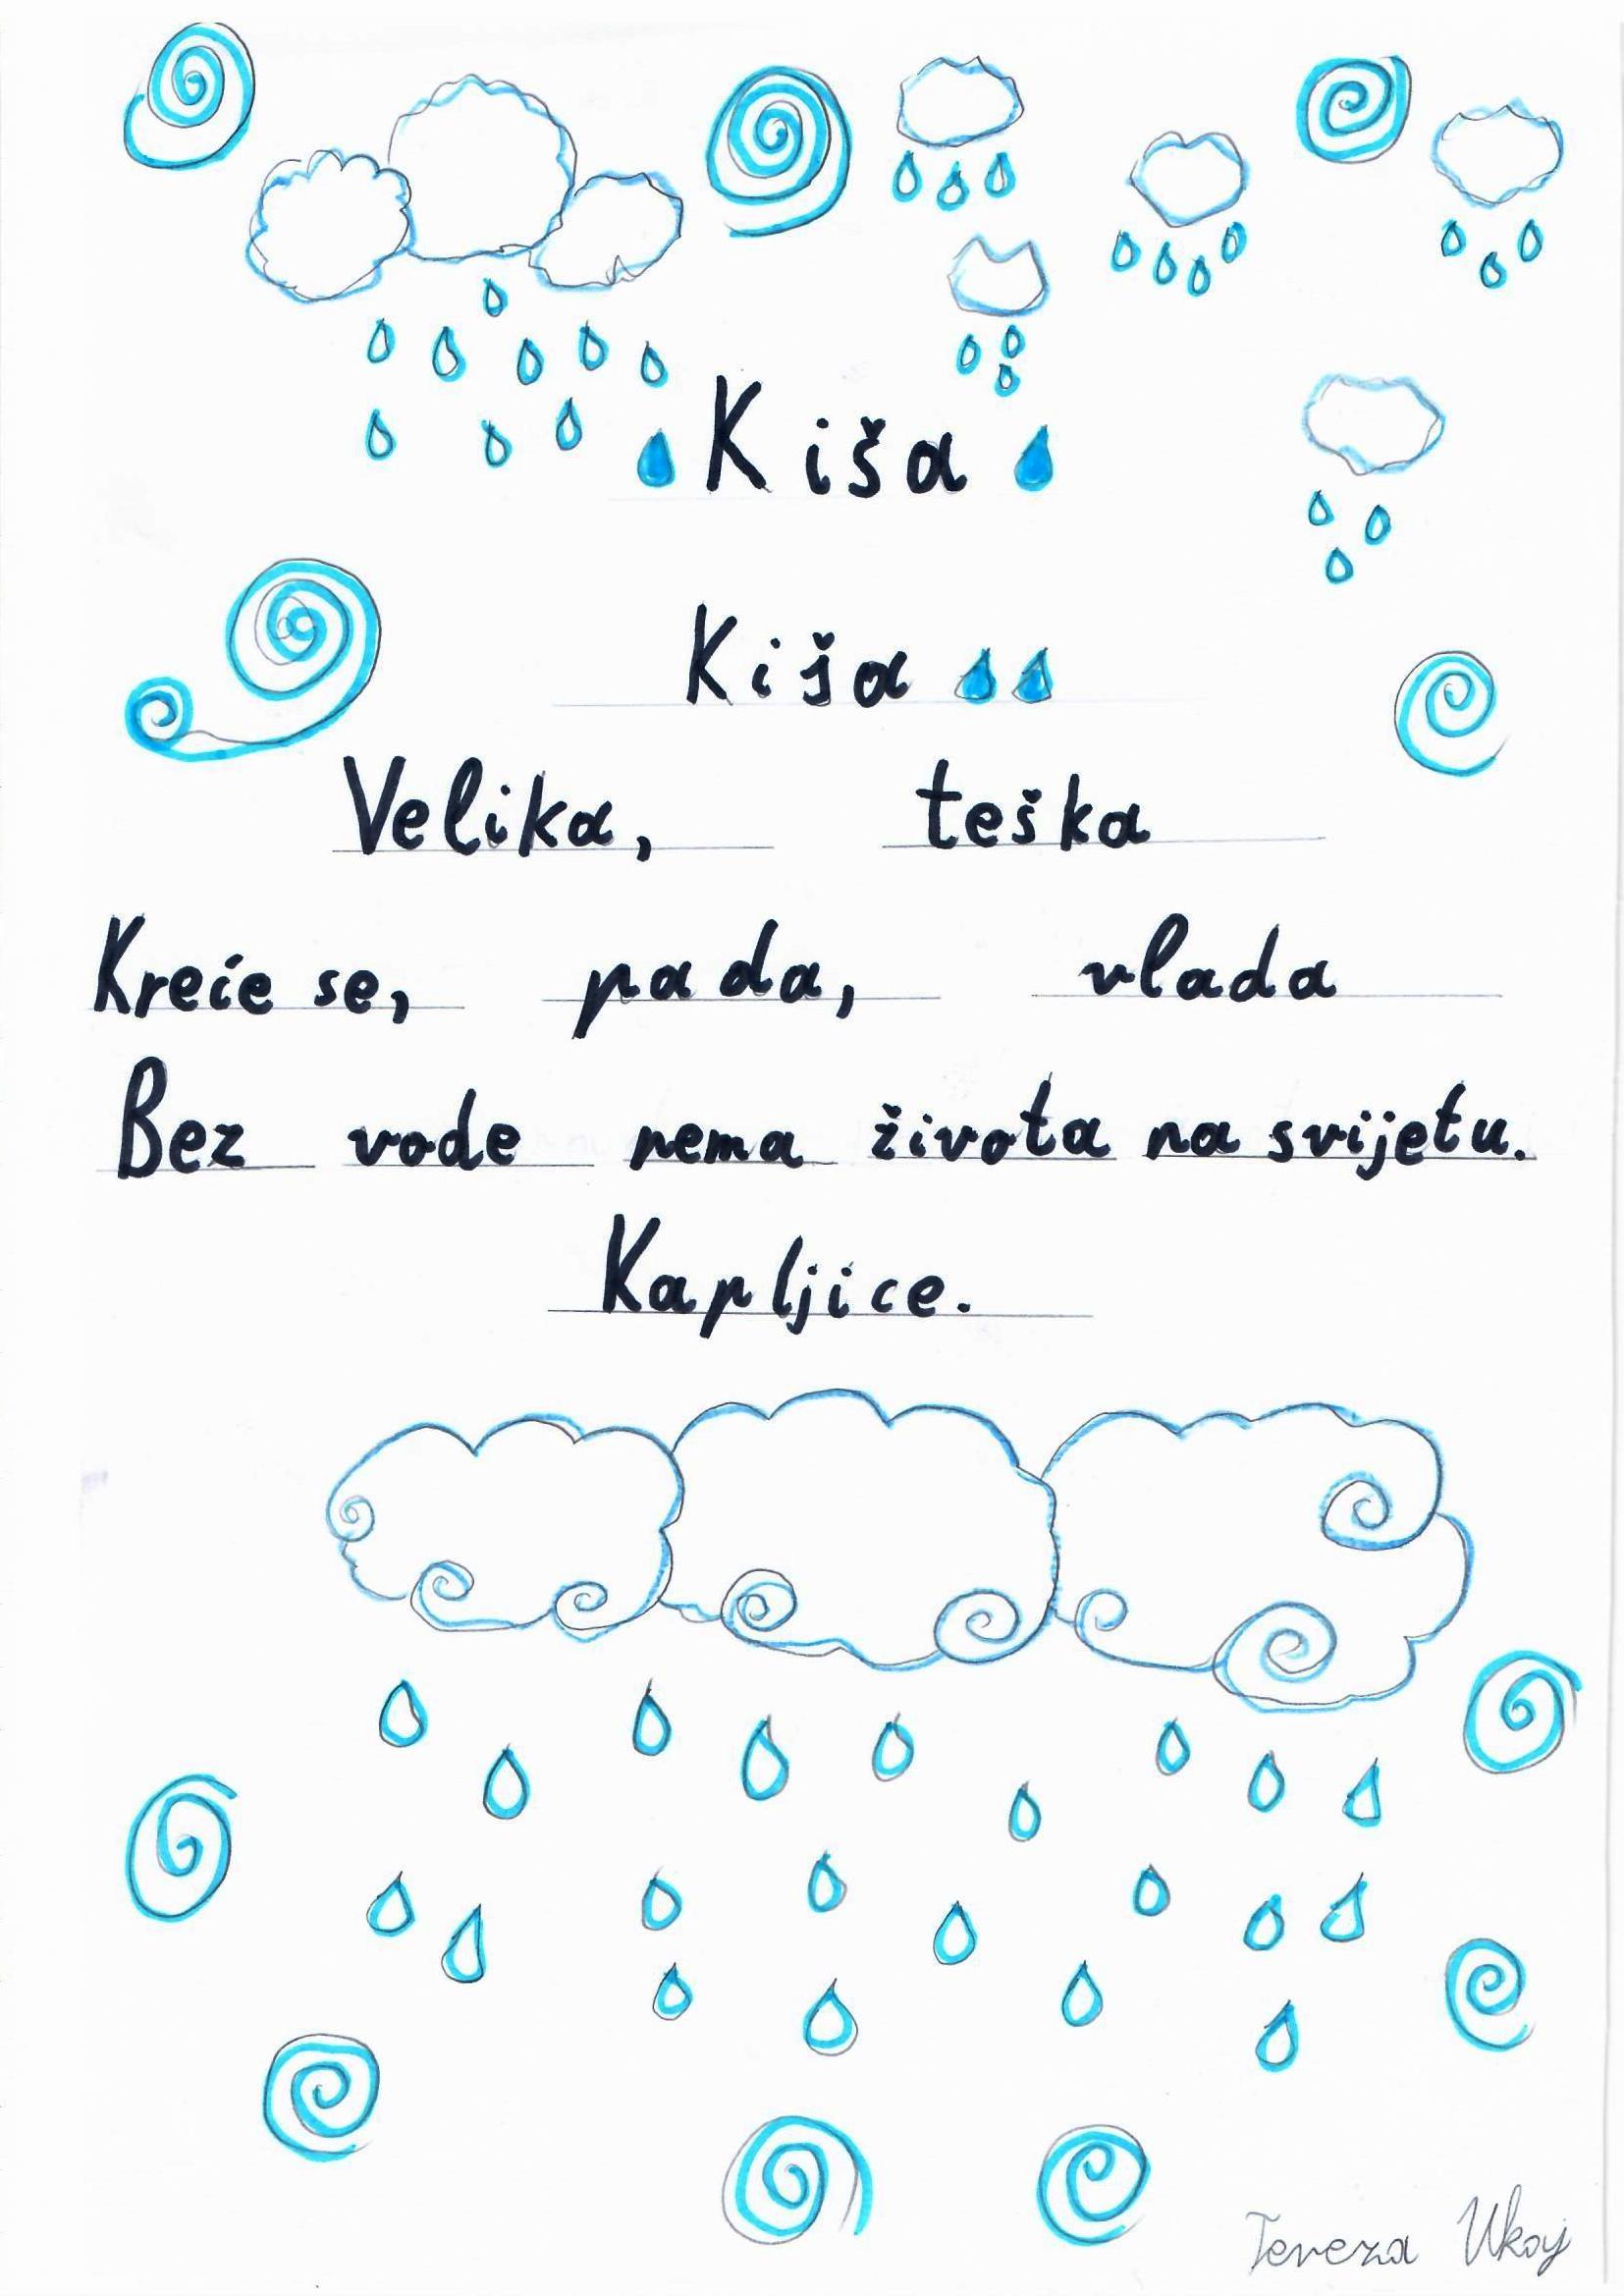 Kiša
Kiša
Velika, teška
Kreće se, pada, vlada
Bez vode nema života na svijetu.
Kapljice.
Tereza Ukaj